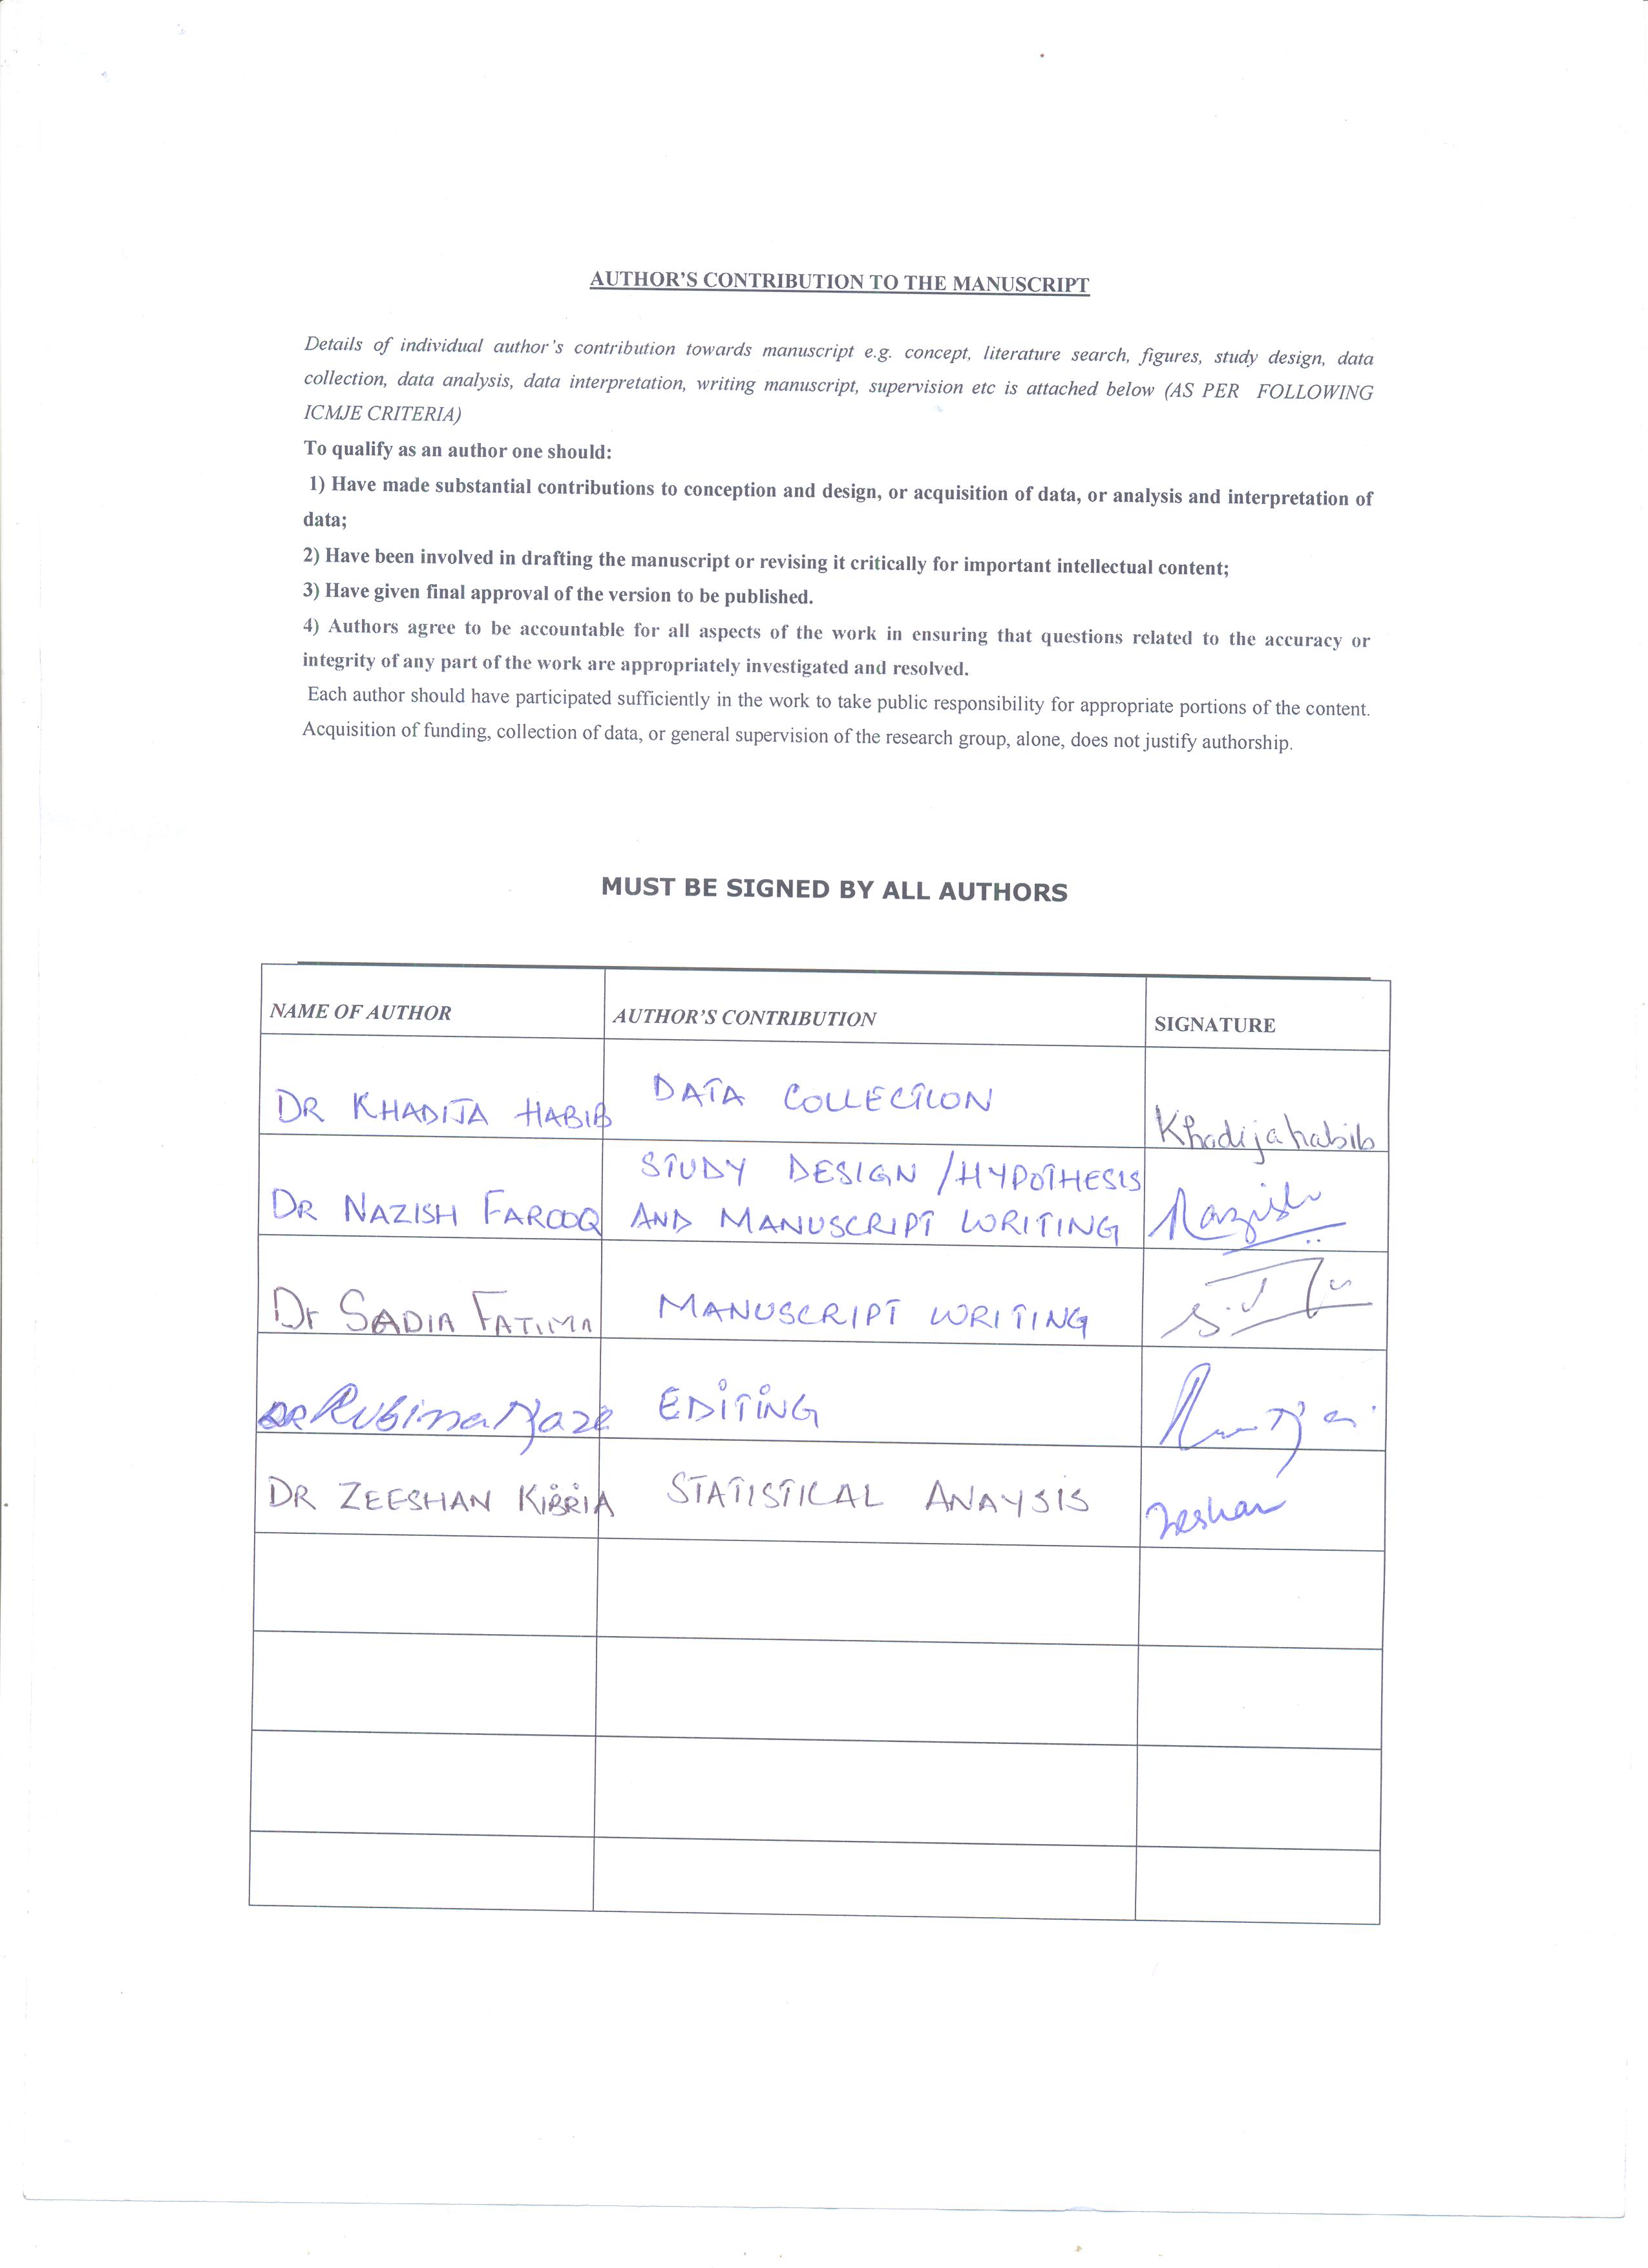 AUTHOR'S CONTRIBUTION TO THE MANUSCRIPT
Details of individual author's contribution towards manuscript e.g. concept, literature search, figures, study design, data
collection, data analysis, data interpretation, writing manuscript, supervision etc is attached below (AS PER FOLLOWING
ICMJE CRITERIA)
To qualify as an author one should:
1) Have made substantial contributions to conception and design, or acquisition of data, or analysis and interpretation of
data;
2) Have been involved in drafting the manuscript or revising it critically for important intellectual content;
3) Have given final approval of the version to be published.
4) Authors agree to be accountable for all aspects of the work in ensuring that questions related to the accuracy or
integrity of any part of the work are appropriately investigated and resolved.
Each author should have participated sufficiently in the work to take public responsibility for appropriate portions of the content.
Acquisition of funding, collection of data, or general supervision of the research group, alone, does not justify authorship.
MUST BE SIGNED BY ALL AUTHORS
NAME OF AUTHOR AUTHOR'S CONTRIBUTION SIGNATURE
DR KHADIJA HABIB DATA COLLECTION Khadijahabib
STUDY DESIGN /HYPOTHESIS
DR NAZISH FAROOQ AND MANUSCRIPT WRITING Nazish
Dr SADIA FATIMA MANUSCRIPT WRITING
DR Rubina Nazli EDITING
DR ZEESHAN KIBRIA STATISTICAL ANAYSIS Zeshan